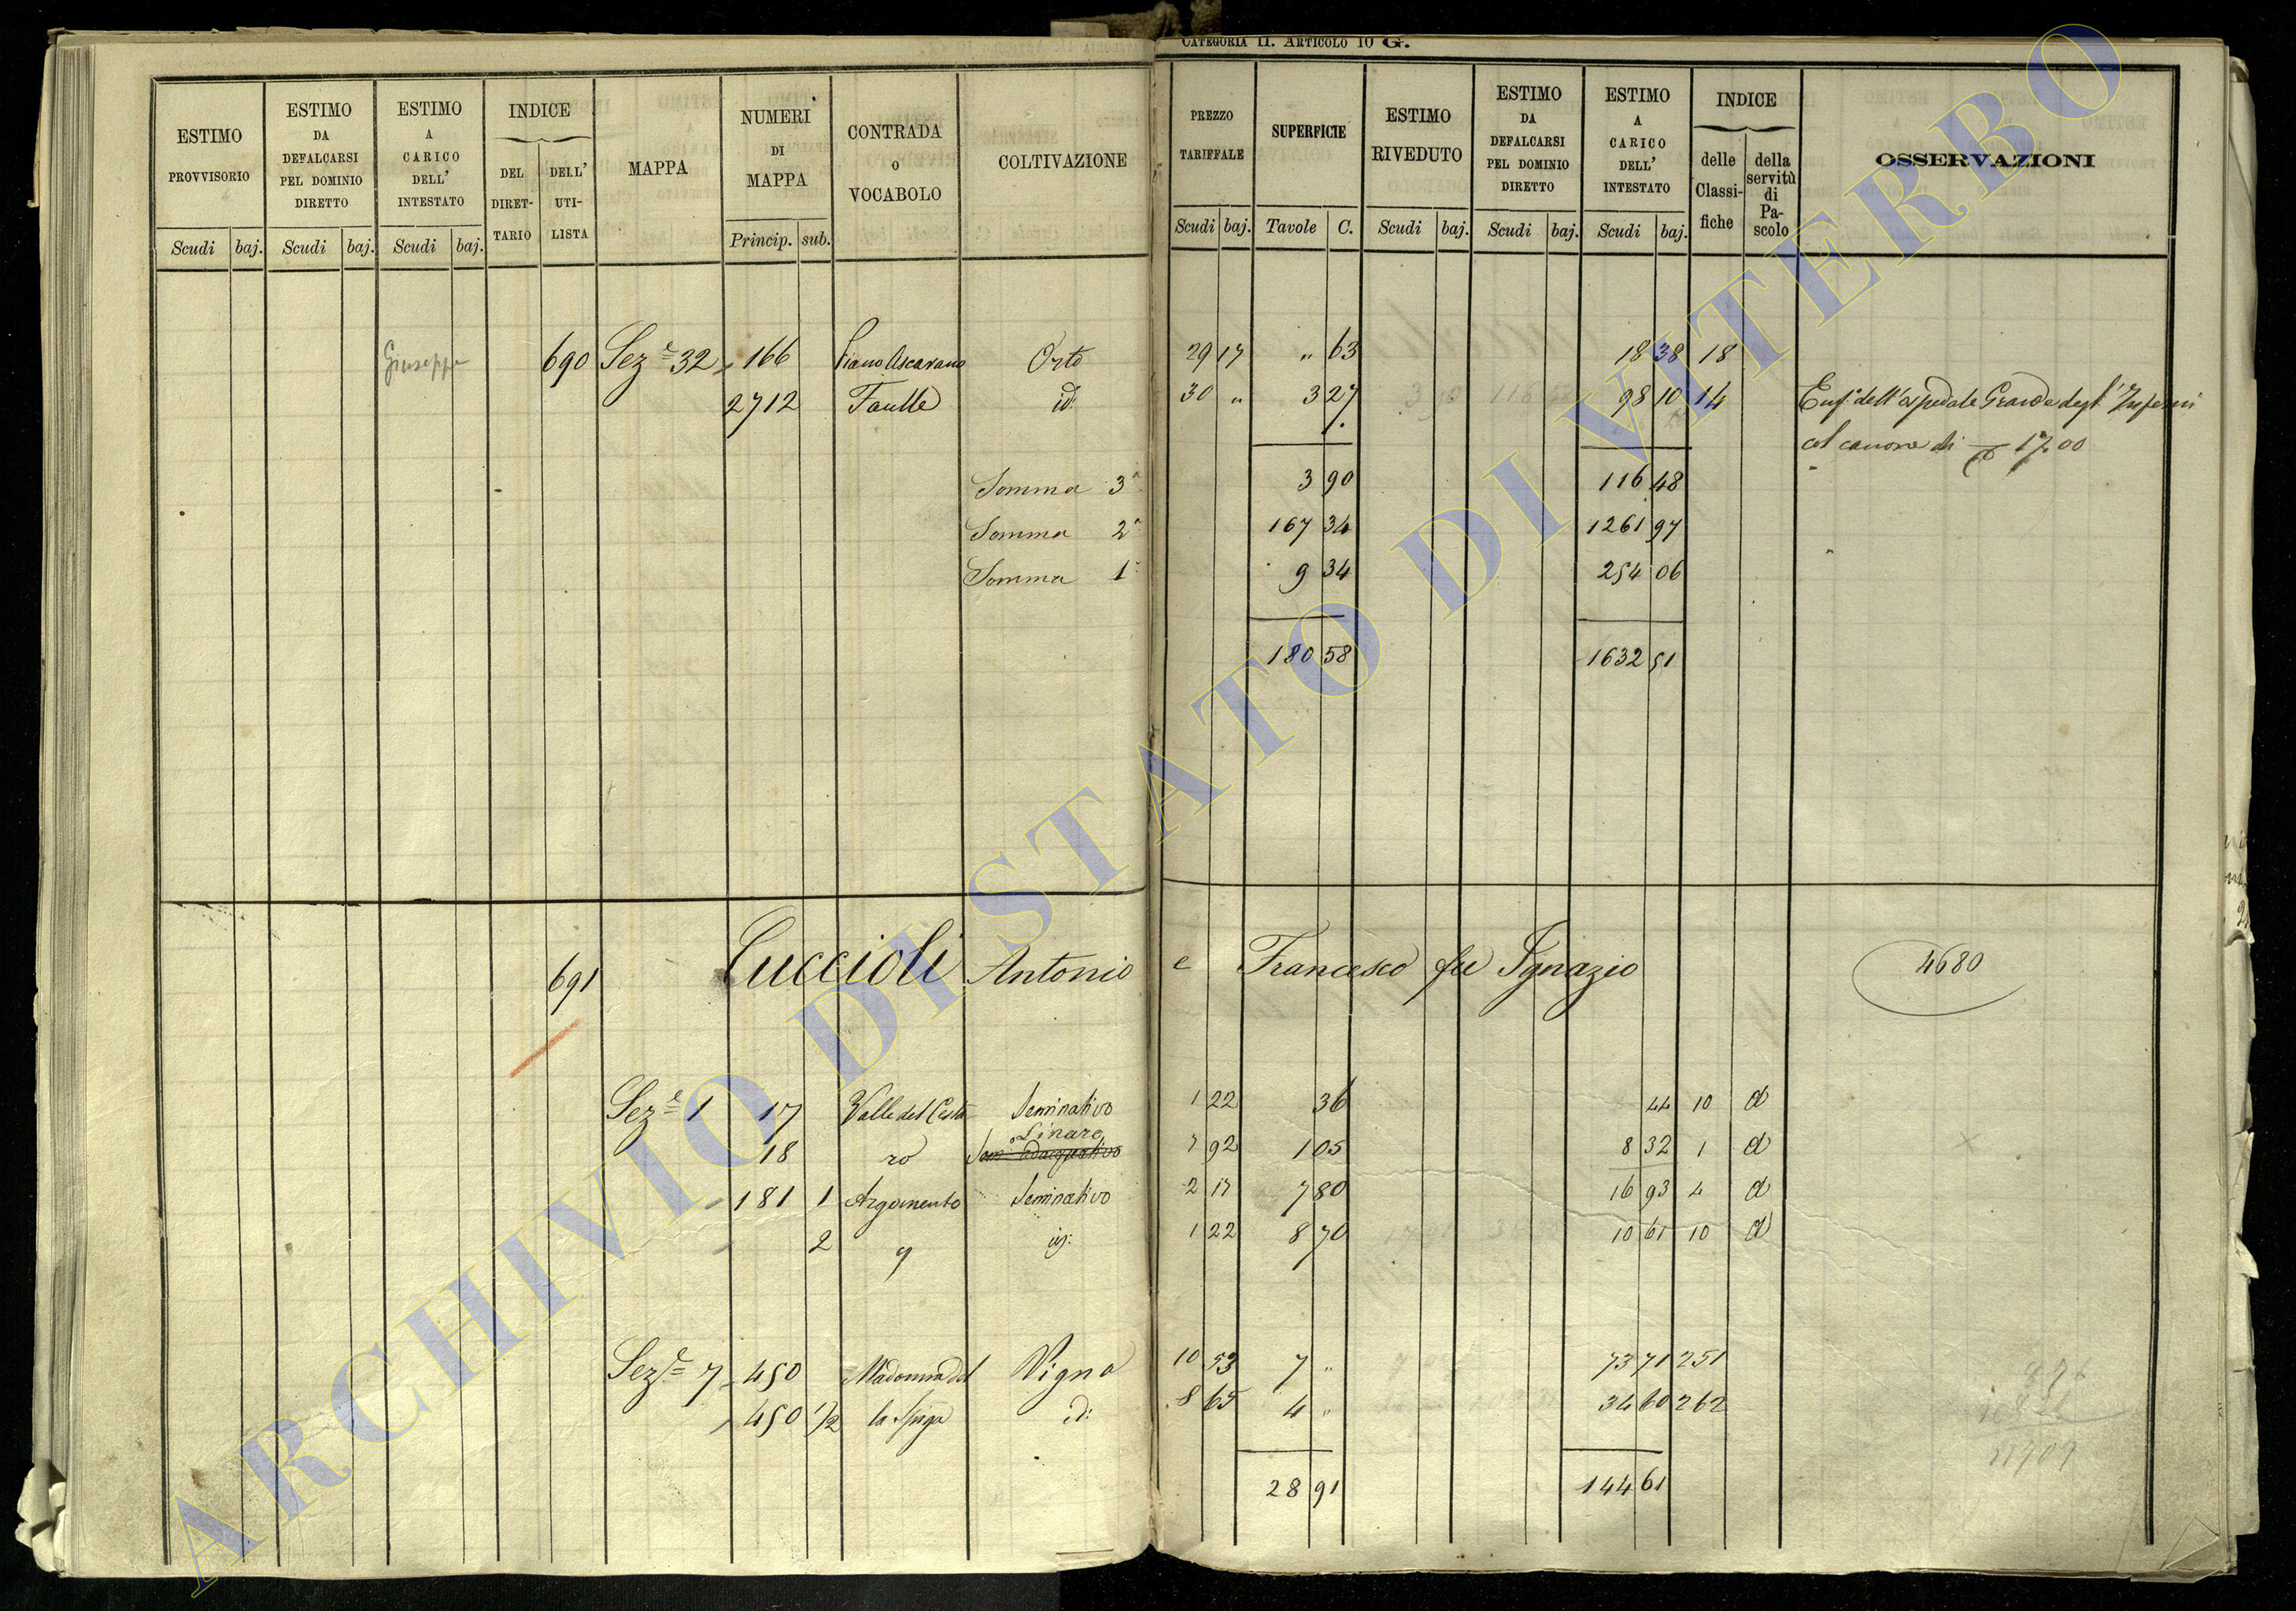 CATEGORIA II. ARTICOLO 10 G.
ESTIMO PROVVISORIO Scudi baj.
ESTIMO DA DEFALCARSI PEL DOMINIO DIRETTO Scudi baj.
ESTIMO A CARICO DELL' INTESTATO Scudi baj.
INDICE DEL DIRET-TARIO DELL' UTI-LISTA
MAPPA
NUMERI DI MAPPA Princip. sub.
CONTRADA o VOCABOLO
COLTIVAZIONE
PREZZO TARIFFALE Scudi baj.
SUPERFICIE Tavole C.
ESTIMO RIVEDUTO Scudi baj.
ESTIMO DA DEFALCARSI PEL DOMINIO DIRETTO Scudi baj.
ESTIMO A CARICO DELL' INTESTATO Scudi baj.
INDICE delle Classi-fiche della servitù di Pa-scolo
OSSERVAZIONI
Giuseppe 690 Sez.e 32 166 Piano Ascarano Orto 29 17 " 63 18 38 18
2712 Faulle id. 30 " 3 27 98 10 14 Enf. dell'Ospedale Grande degl'Infermi
col canone di 17.00
Somma 3a 3 90 116 48
Somma 2a 167 34 1261 97
Somma 1a 9 34 254 06
180 58 1632 51
691 Cuccioli Antonio e Francesco fu Ignazio 4680
Sez.e 1 17 Valle del Cesta Seminativo 1 22 36 44 10 d
Linaro
18 ro Sem. adacquativo 7 92 1 05 8 32 1 d
181 1 Argomento Seminativo 2 17 7 80 16 93 4 d
2 id. 1 22 8 70 10 61 10 d
Sez.e 7 450 Madonna del Vigna 10 53 7 " 73 71 251
450 1/2 la Spiga id. 8 65 4 " 34 60 262
28 91 144 61
ARCHIVIO DI STATO DI VITERBO